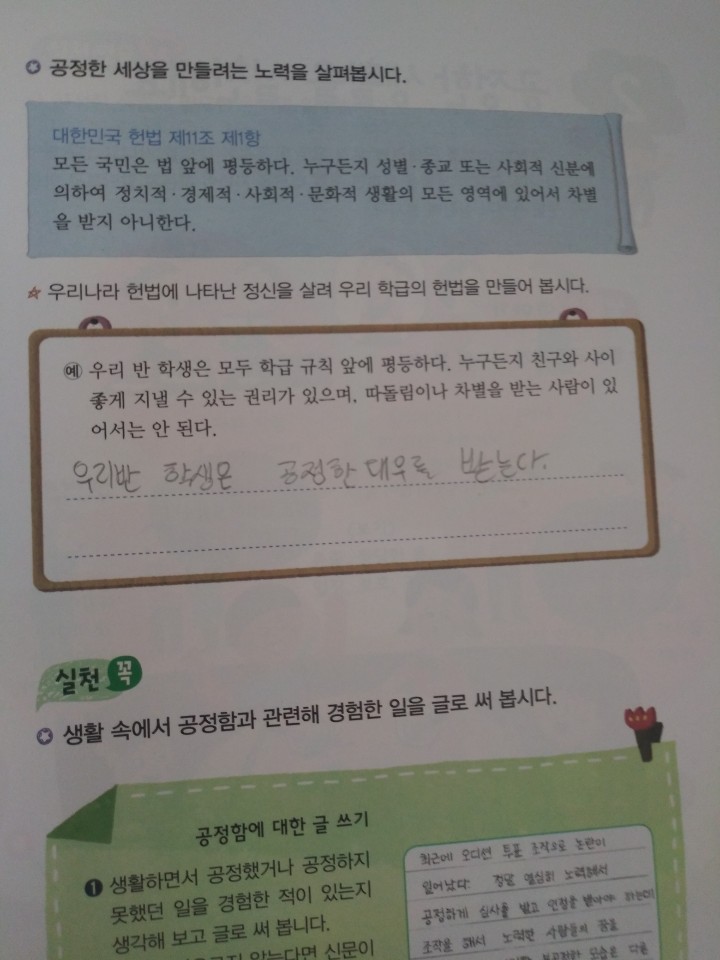 공정한 세상을 만들려는 노력을 살펴봅시다.
대한민국 헌법 제11조 제1항
모든 국민은 법 앞에 평등하다. 누구든지 성별·종교 또는 사회적 신분에
의하여 정치적·경제적·사회적·문화적 생활의 모든 영역에 있어서 차별
을 받지 아니한다.
☆ 우리나라 헌법에 나타난 정신을 살려 우리 학급의 헌법을 만들어 봅시다.
예 우리 반 학생은 모두 학급 규칙 앞에 평등하다. 누구든지 친구와 사이
좋게 지낼 수 있는 권리가 있으며, 따돌림이나 차별을 받는 사람이 있
어서는 안 된다.
우리반 학생은 공정한 대우를 받는다.
실천 꼭
생활 속에서 공정함과 관련해 경험한 일을 글로 써 봅시다.
공정함에 대한 글 쓰기
1 생활하면서 공정했거나 공정하지
못했던 일을 경험한 적이 있는지
생각해 보고 글로 써 봅니다.
않는다면 신문이
최근에 오디션 투표 조작으로 논란이
일어났다. 정말 열심히 노력해서
공정하게 심사를 받고 인정을 받아야 하는데
조작을 해서 노력한 사람들의 꿈을
불공정한 모습은